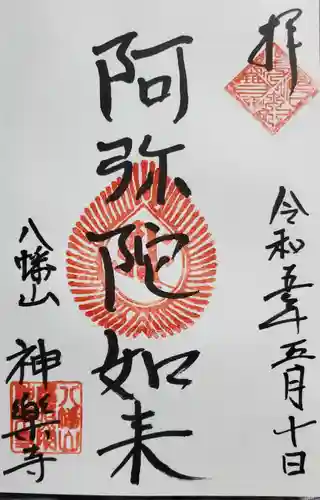 拝
令和五年五月十日
阿弥陀如来
八幡山
神樂寺